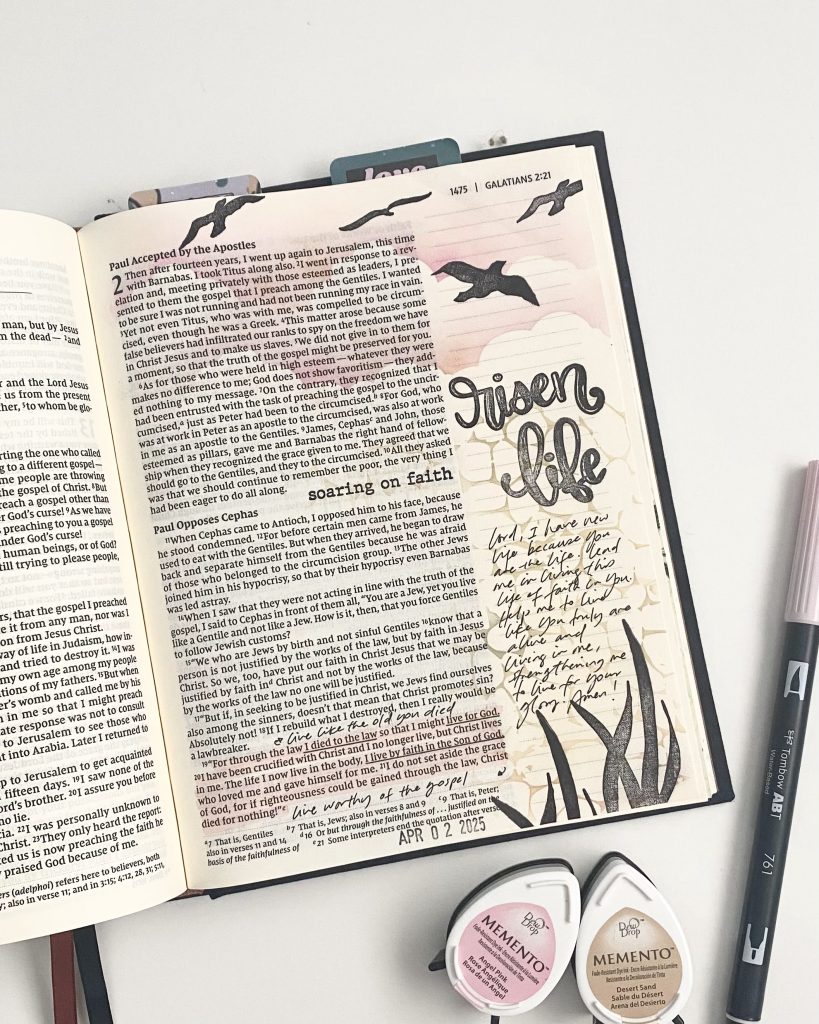 man, but by Jesus
m the dead — ² and
er and the Lord Jesus
us from the present
ther, ⁵to whom be glo-
rting the one who called
ng to a different gospel—
me people are throwing
the gospel of Christ. ⁸But
reach a gospel other than
er God's curse! ⁹As we have
s preaching to you a gospel
under God's curse!
human beings, or of God?
till trying to please people,
rs, that the gospel I preached
e it from any man, nor was I
on from Jesus Christ.
way of life in Judaism, how in-
and tried to destroy it. ¹⁴I was
my own age among my people
itions of my fathers. ¹⁵But when
er's womb and called me by his
n in me so that I might preach
ate response was not to consult
to Jerusalem to see those who
nt into Arabia. Later I returned
p to Jerusalem to get acquainted
fifteen days. ¹⁹I saw none of the
ord's brother. ²⁰I assure you before
no lie.
cia. ²²I was personally unknown to
Christ. ²³They only heard the report:
ted us is now preaching the faith he
y praised God because of me.
ers (adelphoi) refers here to believers, both
y; also in verse 11; and in 3:15; 4:12, 28, 31; 5:11,
love
1475 | GALATIANS 2:21
Paul Accepted by the Apostles
2 Then after fourteen years, I went up again to Jerusalem, this time
with Barnabas. I took Titus along also. ²I went in response to a rev-
elation and, meeting privately with those esteemed as leaders, I pre-
sented to them the gospel that I preach among the Gentiles. I wanted
to be sure I was not running and had not been running my race in vain.
³Yet not even Titus, who was with me, was compelled to be circum-
cised, even though he was a Greek. ⁴This matter arose because some
false believers had infiltrated our ranks to spy on the freedom we have
in Christ Jesus and to make us slaves. ⁵We did not give in to them for
a moment, so that the truth of the gospel might be preserved for you.
⁶As for those who were held in high esteem — whatever they were
makes no difference to me; God does not show favoritism — they add-
ed nothing to my message. ⁷On the contrary, they recognized that I
had been entrusted with the task of preaching the gospel to the uncir-
cumcised,ᵃ just as Peter had been to the circumcised.ᵇ ⁸For God, who
was at work in Peter as an apostle to the circumcised, was also at work
in me as an apostle to the Gentiles. ⁹James, Cephasᶜ and John, those
esteemed as pillars, gave me and Barnabas the right hand of fellow-
ship when they recognized the grace given to me. They agreed that we
should go to the Gentiles, and they to the circumcised. ¹⁰All they asked
was that we should continue to remember the poor, the very thing I
had been eager to do all along.
soaring on faith
Paul Opposes Cephas
¹¹When Cephas came to Antioch, I opposed him to his face, because
he stood condemned. ¹²For before certain men came from James, he
used to eat with the Gentiles. But when they arrived, he began to draw
back and separate himself from the Gentiles because he was afraid
of those who belonged to the circumcision group. ¹³The other Jews
joined him in his hypocrisy, so that by their hypocrisy even Barnabas
was led astray.
¹⁴When I saw that they were not acting in line with the truth of the
gospel, I said to Cephas in front of them all, "You are a Jew, yet you live
like a Gentile and not like a Jew. How is it, then, that you force Gentiles
to follow Jewish customs?
¹⁵"We who are Jews by birth and not sinful Gentiles ¹⁶know that a
person is not justified by the works of the law, but by faith in Jesus
Christ. So we, too, have put our faith in Christ Jesus that we may be
justified by faith inᵈ Christ and not by the works of the law, because
by the works of the law no one will be justified.
¹⁷"But if, in seeking to be justified in Christ, we Jews find ourselves
also among the sinners, doesn't that mean that Christ promotes sin?
Absolutely not! ¹⁸If I rebuild what I destroyed, then I really would be
a lawbreaker.
& live like the old you died
¹⁹"For through the law I died to the law so that I might live for God.
²⁰I have been crucified with Christ and I no longer live, but Christ lives
in me. The life I now live in the body, I live by faith in the Son of God,
who loved me and gave himself for me. ²¹I do not set aside the grace
of God, for if righteousness could be gained through the law, Christ
died for nothing!"ᵉ
live worthy of the gospel
ᵃ7 That is, Gentiles ᵇ7 That is, Jews; also in verses 8 and 9 ᶜ9 That is, Peter;
also in verses 11 and 14 ᵈ16 Or but through the faithfulness of . . . justified on the
basis of the faithfulness of ᵉ21 Some interpreters end the quotation after verse
APR 02 2025
risen
life
Lord, I have new
life because you
are the life. Lead
me in living this
life of faith in you.
Help me to live
like you truly are
alive and
living in me,
strengthening me
to live for your
glory. Amen!
Dew
Drop
MEMENTO™
Fade-Resistant Dye Ink
Angel Pink
Rose Angélique
Rosa de un Angel
Dew
Drop
MEMENTO™
Fade-Resistant Dye Ink · Encre Résistante à la Lumière
Resistente a la Decoloración de Tinta
Desert Sand
Sable du Désert
Arena del Desierto
Tombow ABT
Water-Based
761